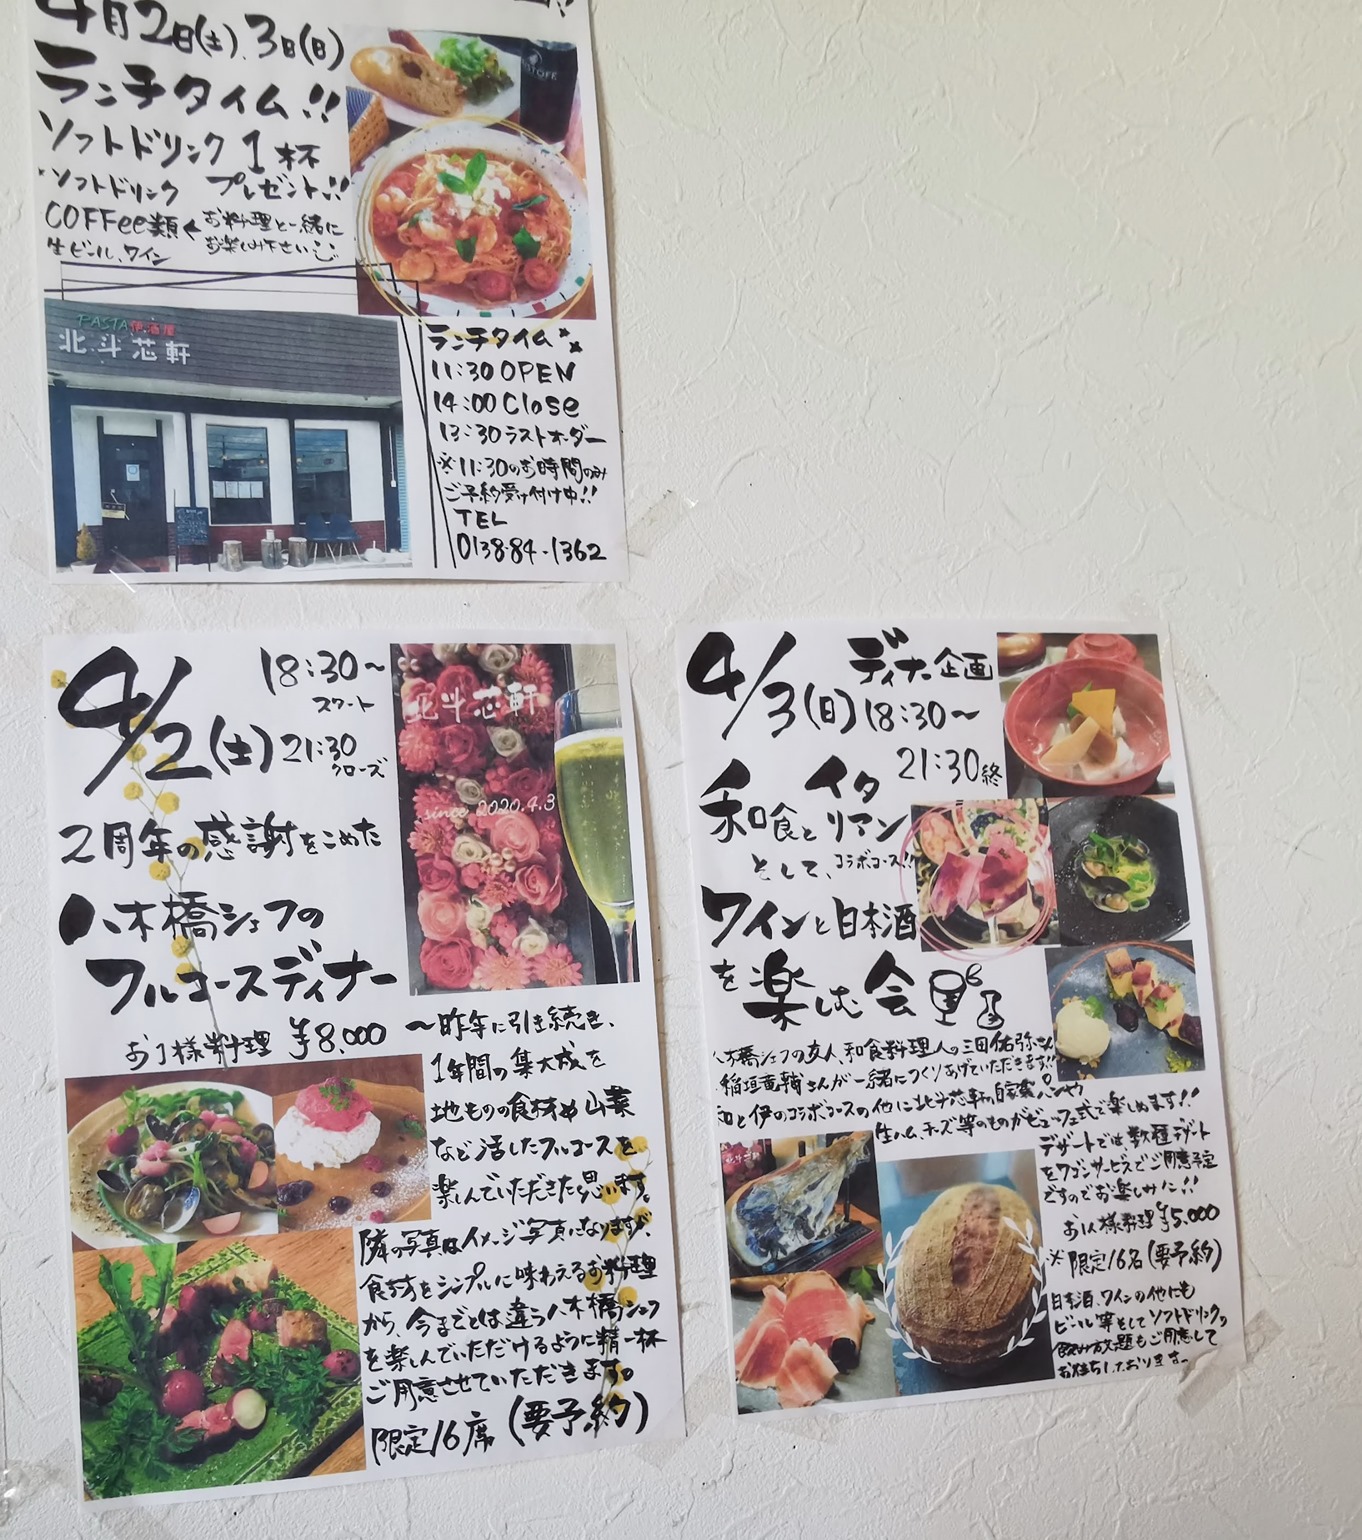 4月2日(土)、3日(日)
ランチタイム!!
ソフトドリンク 1杯
プレゼント!!
・ソフトドリンク
COFFee類
生ビール、ワイン
お料理と一緒に
お楽しみ下さい
PASTA 伊酒屋
北斗芯軒
ランチタイム
11:30 OPEN
14:00 Close
13:30 ラストオーダー
※11:30のお時間のみ
ご予約受け付け中!!
TEL
0138-84-1362
4/2(土)
18:30〜
スタート
21:30
クローズ
2周年の感謝をこめた
八木橋シェフの
フルコースディナー
お1人様料理 ¥8,000
北斗芯軒
since 2020.4.3
〜昨年に引き続き、
1年間の集大成を
地ものの食材や山菜
など活したフルコースを
楽しんでいただきたく思います。
隣の写真はイメージ写真になりますが、
食材をシンプルに味わえるお料理
から、今までとは違う八木橋シェフ
を楽しんでいただけるように精一杯
ご用意させていただきます。
限定16席(要予約)
4/3(日)
ディナー企画
18:30〜
21:30終
和食とイタリアン
として、コラボコース!!
ワインと日本酒
を楽しむ会
八木橋シェフの友人、和食料理人の三国佑弥さん
稲垣竜輔さんが一緒につくりあげていただきます!!
和と伊のコラボコースの他に北斗芯軒の自家製パンや
生ハム、チーズ等のものがビュッフェ式で楽しめます!!
デザートでは、数種デザート
をワゴンサービスでご用意予定
ですのでお楽しみに!!
お1人様料理 ¥5,000
※限定16名(要予約)
日本酒、ワインの他にも
ビール等そしてソフトドリンクの
飲み放題もご用意して
お待ちしております。